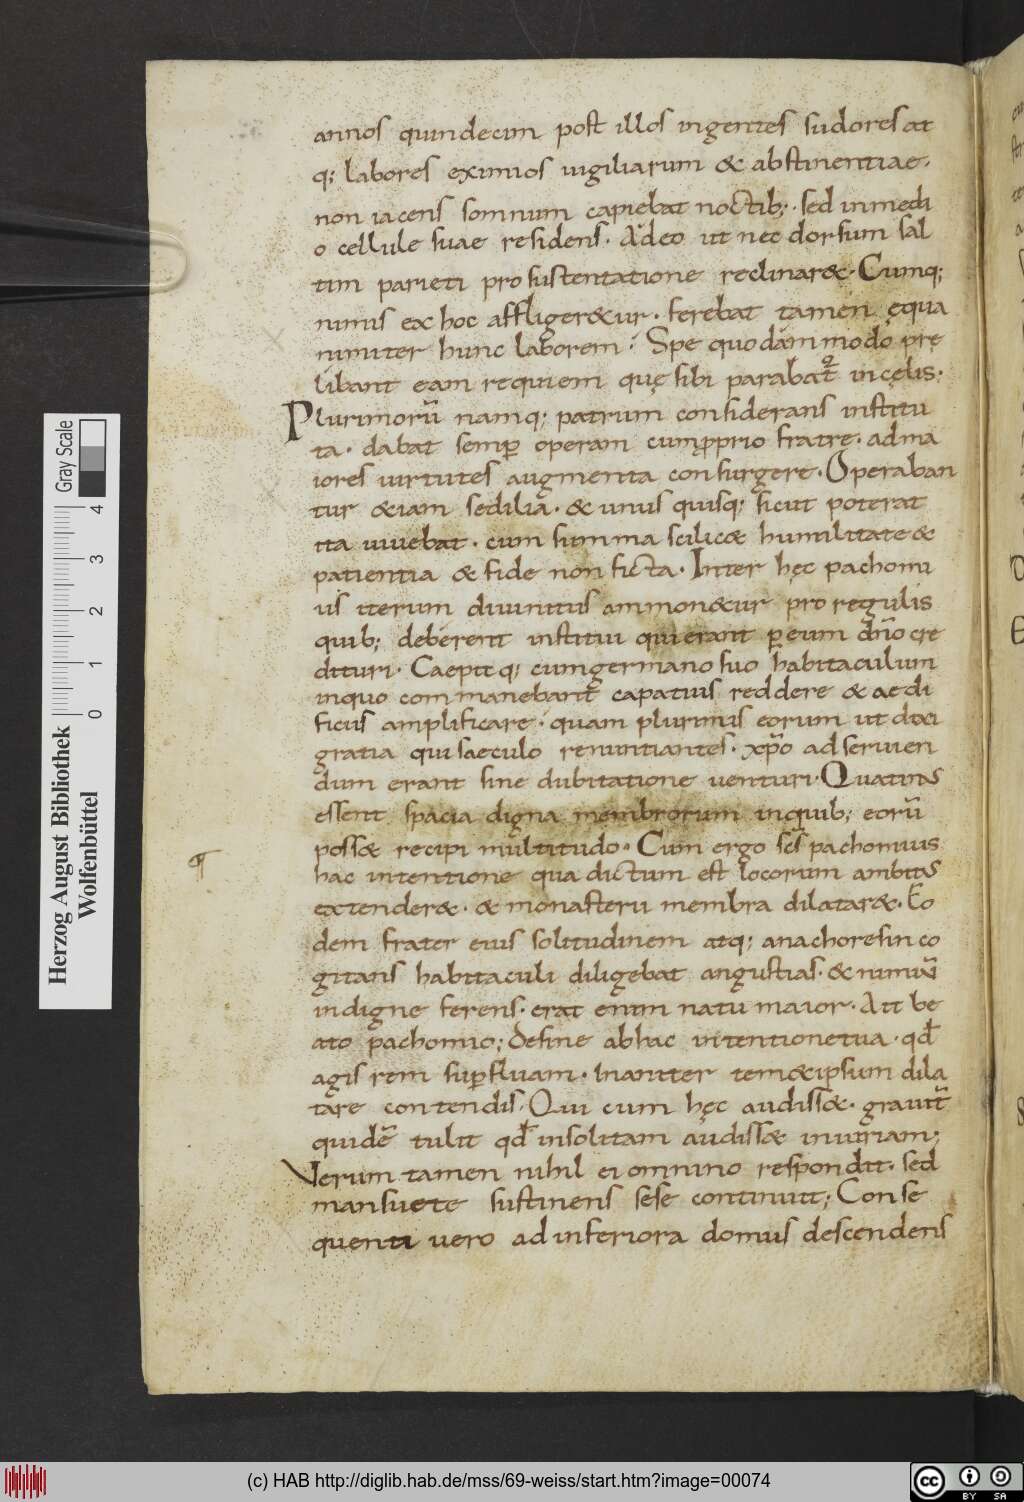 annos quindecim post illos ingentes sudores at
q; labores eximios uigiliarum & abstinentiae.
non iacens somnum capiebat noctib;. sed inmedi
o cellule suae residens. Adeo ut nec dorsum sal
tim parieti pro sustentatione reclinar&. Cumq;
nimis ex hoc affliger&ur. ferebat tamen ęqua
nimiter hunc laborem; Spe quodammodo pre
libant eam requiem quę sibi parabat᷒ incęlis;
Plurimorū namq; patrum considerans institu
ta. dabat semp̄ operam cumꝓprio fratre. adma
iores uirtutes augmenta consurgere. Operaban
tur &iam sedilia. & unus quisq; sicut poterat
ita uiuebat. cum summa scilic& humilitate &
patientia & fide non ficta. Inter hęc pachomi
us iterum diuinitus ammon&ur pro regulis
quib; deberent institui qui erant ꝑ eum dn̄o cre
dituri. Caepit q; cum germano suo habitaculum
inquo commanebant capatius reddere & aedi
ficiis amplificare. quam plurimis eorum ut dixi
gratia qui saeculo renuntiantes. xp̄o ad seruien
dum erant sine dubitatione uenturi. Quatinus
essent spacia digna membrorum inquib; eorū
poss& recipi multitudo. Cum ergo sc̄s pachomius
hac intentione qua dictum est locorum ambitus
extender&. & monasterii membra dilatar&. Eo
dem frater eius solitudinem atq; anachoresin co
gitans habitaculi diligebat angustias. & nimiū
indigne ferens. erat enim natu maior. Ait be
ato pachomio; Desine abhac intentione tua. qđ
agis rem suꝑfluam. Inaniter tem&ipsum dila
tare contendis. Qui cum hęc audiss&. grauit̄
quidē tulit qđ insolitam audiss& iniuriam;
Verum tamen nihil ei omnino respondit. sed
mansuete sustinens sese continuit; Conse
quenti uero ad inferiora domus descendens
Herzog August Bibliothek
Wolfenbüttel
Gray Scale
0 1 2 3 4
(c) HAB http://diglib.hab.de/mss/69-weiss/start.htm?image=00074
cc BY SA